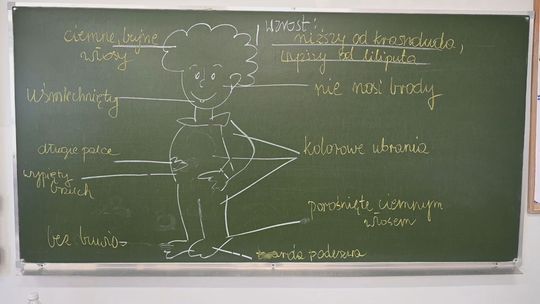 Wzrost:
niższy od krasnoluda,
wyższy od liliputa
ciemne, bujne
włosy
uśmiechnięty
nie nosi brody
długie palce
kolorowe ubrania
wypięty
brzuch
porośnięte ciemnym
włosem
bez butów
podeszwa